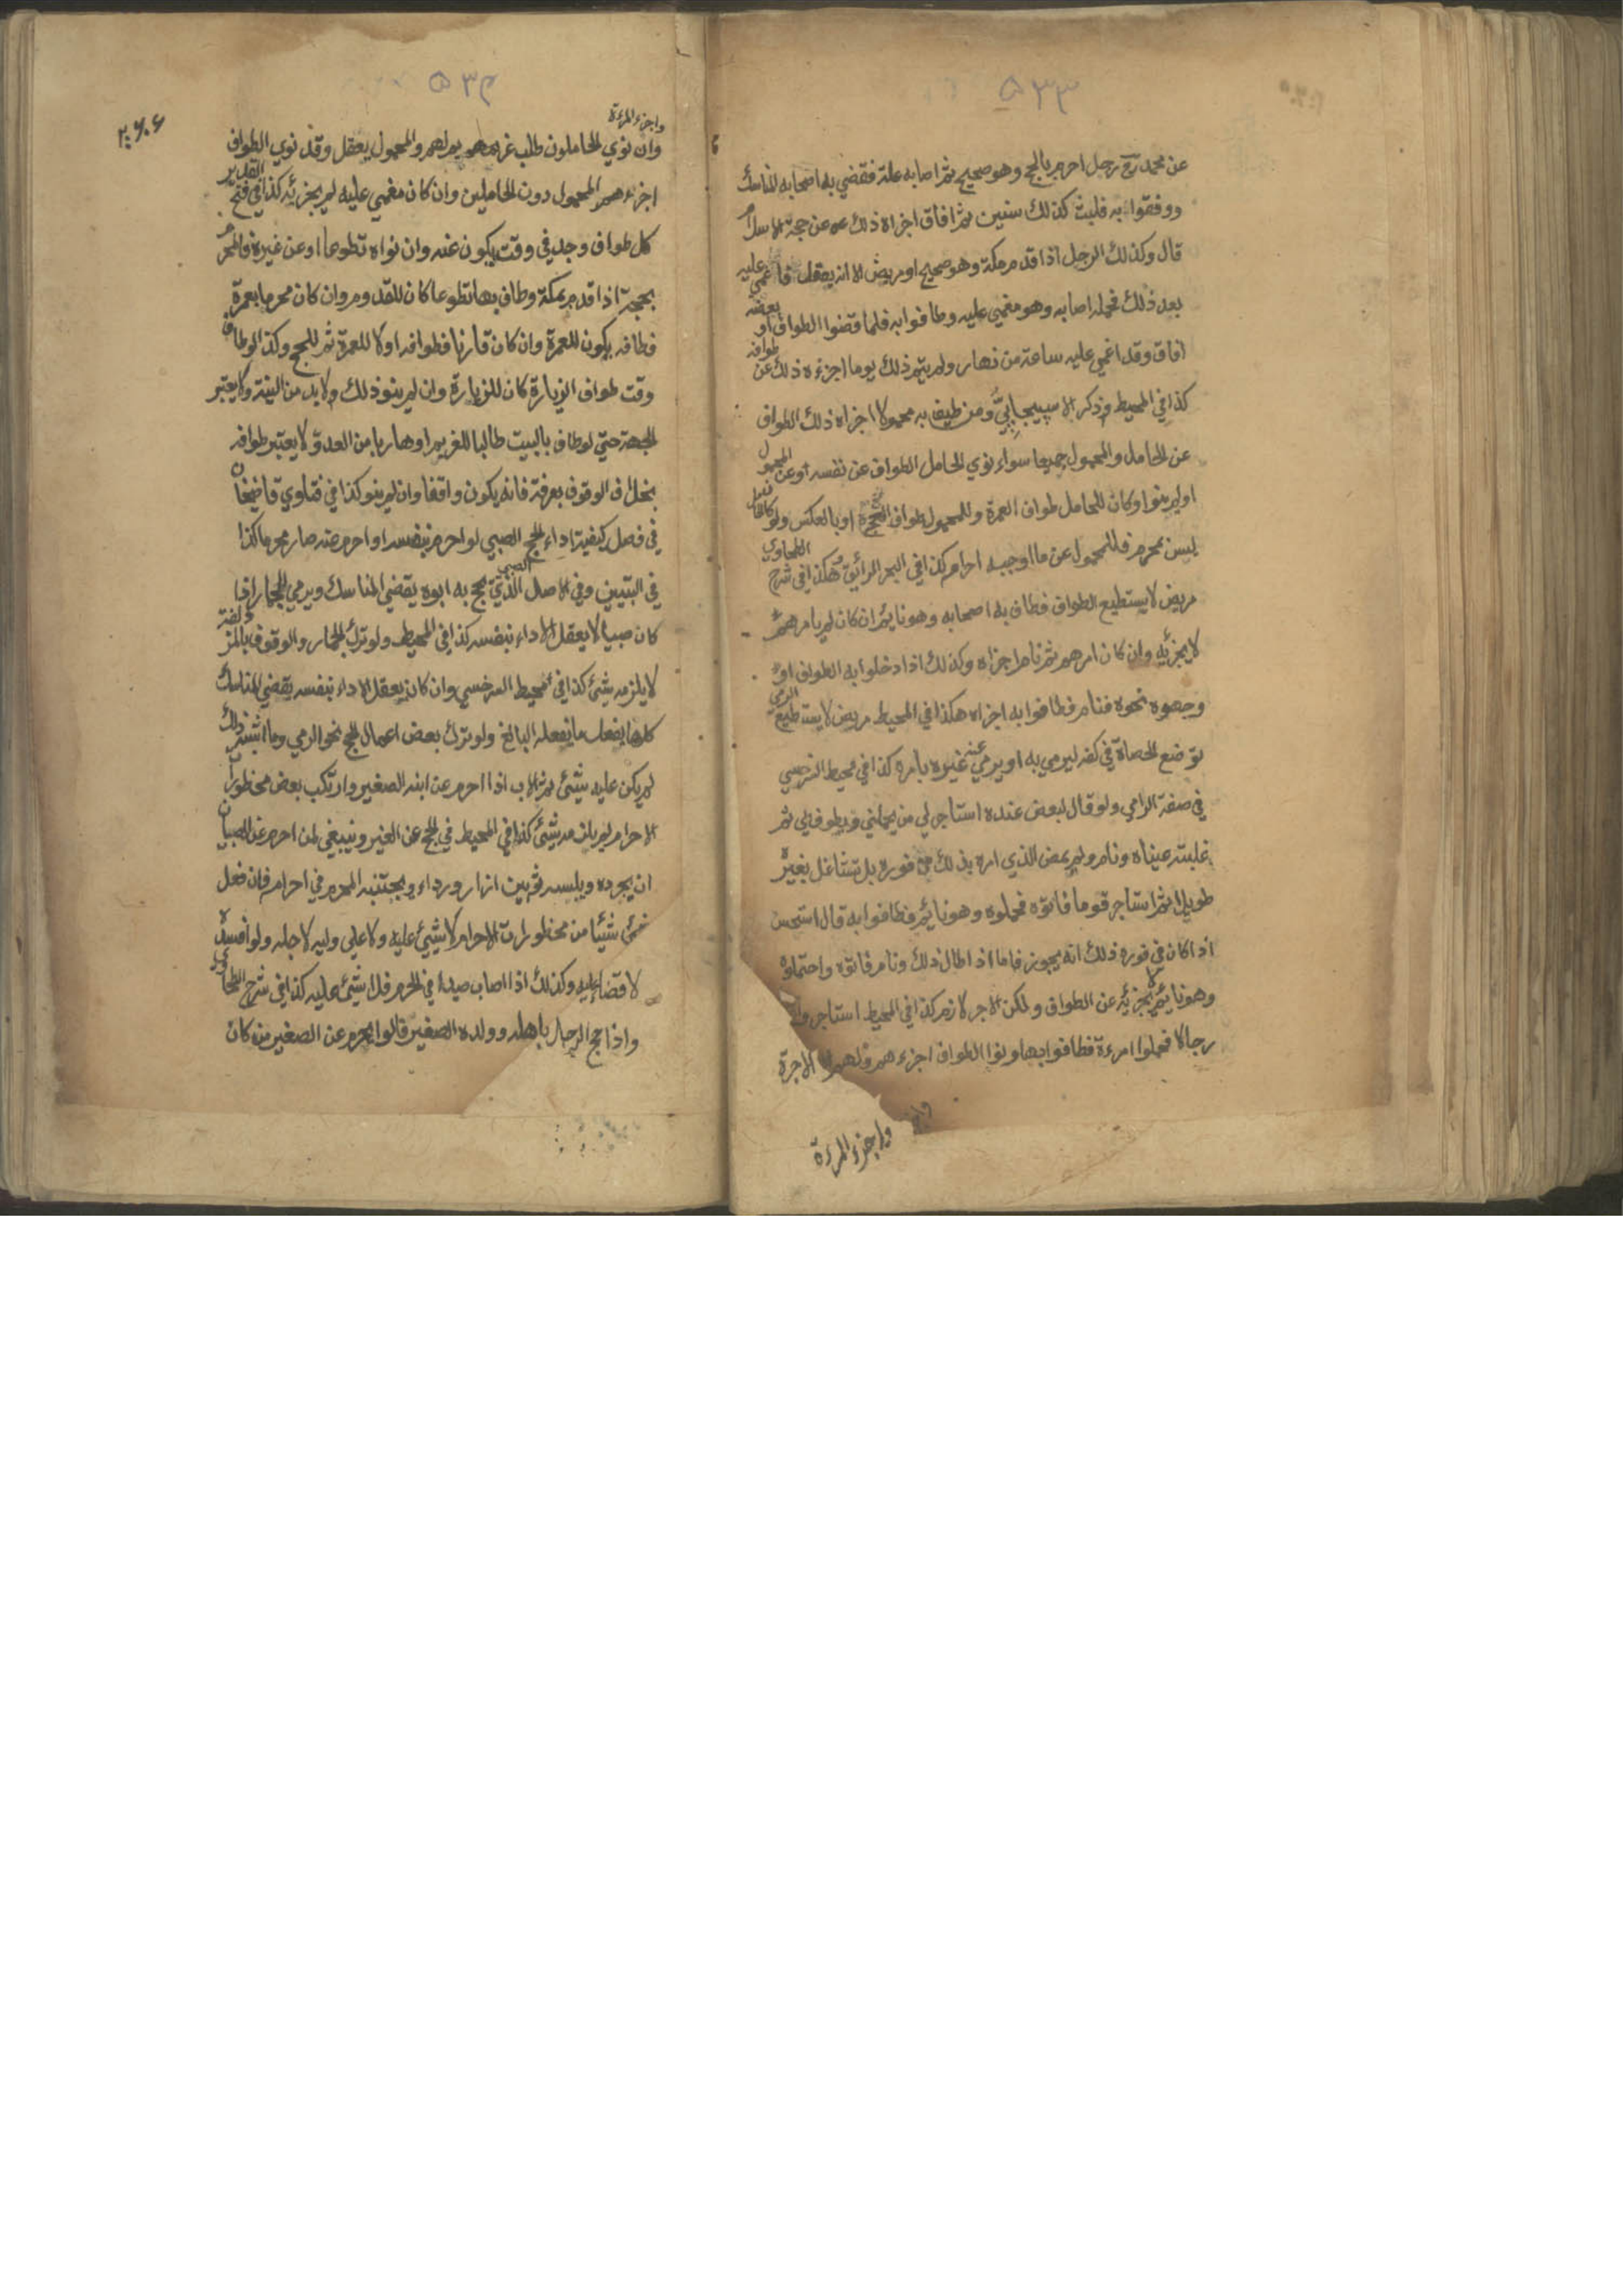 ٥٣٣
عن محمد رح رجل احرم بالحج وهو صحيح ثم اصابه علة فقضي به اصحابه المناسك
ووقفوا به فلبث كذلك سنين ثم افاق اجزاه ذلك عن حجة الاسلام
قال وكذلك الرجل اذا قدم مكة وهو صحيح او مريض الا انه يعقل فاغمي عليه
بعد ذلك فحمله اصحابه وهو مغمي عليه وطافوا به فلما قضوا الطواف او بعضه
افاق وقد اغمي عليه ساعة من نهار ولم يتم ذلك يوما اجزءه ذلك عن طوافه
كذا في المحيط وذكر الاسبيجابي ومن طيف به محمولا اجزاه ذلك الطواف
عن الحامل والمحمول جميعا سواء نوي الحامل الطواف عن نفسه او عن المحمول
او لم ينوا وكان للحامل طواف العمرة وللمحمول طواف الحج او بالعكس ولو كان الحامل
ليس بمحرم فللمحمول عن ما اوجبه احرام كذا في البحر الرائق وهكذا في شرح الطحاوي
مريض لا يستطيع الطواف فطاف به اصحابه وهو نائم ان كان لم يامرهم
لا يجزئه وان كان امرهم ثم نام اجزاه وكذلك اذا دخلوا به الطواف او
وجهوه نحوه فنام فطافوا به اجزاه هكذا في المحيط مريض لا يستطيع الرمي
توضع الحصاة في كفه ليرمي به او يرمي عنه غيره بامره كذا في محيط السرخسي
في صفة الرامي ولو قال لبعض عنده استاجر لي من يحملني ويطوف بي ثم
غلبته عيناه ونام ولم يمض الذي امره بذلك من فوره بل تشاغل بغيره
طويلا ثم استاجر قوما فاتوه فحملوه وهو نائم فطافوا به قال استحسن
اذا كان في فوره ذلك انه يجوز فاما اذا طال ذلك ونام فاتوه واحتملوه
وهو نائم لا يجزئه عن الطواف ولكن الاجر لازم كذا في المحيط استاجروا
رجالا فحملوا امرءة فطافوا بها ونوا الطواف اجزءهم ولهم الاجرة
واجزء المرءة
٥٣٤
٢٠٦
واجزء المرءة
وان نوي الحاملون طلب غريمهم لهم والمحمول يعقل وقد نوي الطواف
اجزءهم المحمول دون الحاملين وان كان مغمي عليه لم يجزئه كذا في فتح القدير
كل طواف وجب في وقت يكون عنه وان نواه تطوعا او عن غيره فالمحرم
بحجة اذا قدم بمكة وطاف بها تطوعا كان للقدوم وان كان محرما بعمرة
فطافه يكون للعمرة وان كان قارنا فطوافه اولا للعمرة ثم للحج وكذا لو طاف
وقت طواف الزيارة كان للزيارة وان لم ينو ذلك ولا بد من النية ولا يعتبر
الجهة حتي لو طاف بالبيت طالبا للغريم او هاربا من العدو لا يعتبر طوافه
بخلاف الوقوف بعرفة فانه يكون واقفا وان لم ينو كذا في فتاوي قاضيخان
في فصل كيفية اداء الحج الصبي لو احرم بنفسه او احرم عنه صار محرما كذا
في التبيين وفي الاصل الصبي الذي يحج به ابوه يقضي المناسك ويرمي الجمار اذا
كان صبيا لا يعقل الاداء بنفسه كذا في المحيط ولو ترك الجمار والوقوف بالمزدلفة
لا يلزمه شئ كذا في محيط السرخسي وان كان يعقل الاداء بنفسه يقضي المناسك
كلها يفعل ما يفعله البالغ ولو ترك بعض اعمال الحج نحو الرمي وما اشبه ذلك
لم يكن عليه شئ ثم الاب اذا احرم عن ابنه الصغير وارتكب بعض محظورات
الاحرام لم يلزمه شئ كذا في المحيط في الحج عن الغير وينبغي لمن احرم عن الصبيان
ان يجرده ويلبسه ثوبين ازار ورداء ويجتنبه المحرم في احرام فان فعل
شيئا من محظورات الاحرام لا شئ عليه ولا علي وليه لاجله ولو افسده
لا قضاء عليه وكذلك اذا اصاب صيدا في الحرم فلا شئ عليه كذا في شرح الطحاوي
واذا حج الرجل باهله وولده الصغير قالوا يحرم عن الصغير من كان